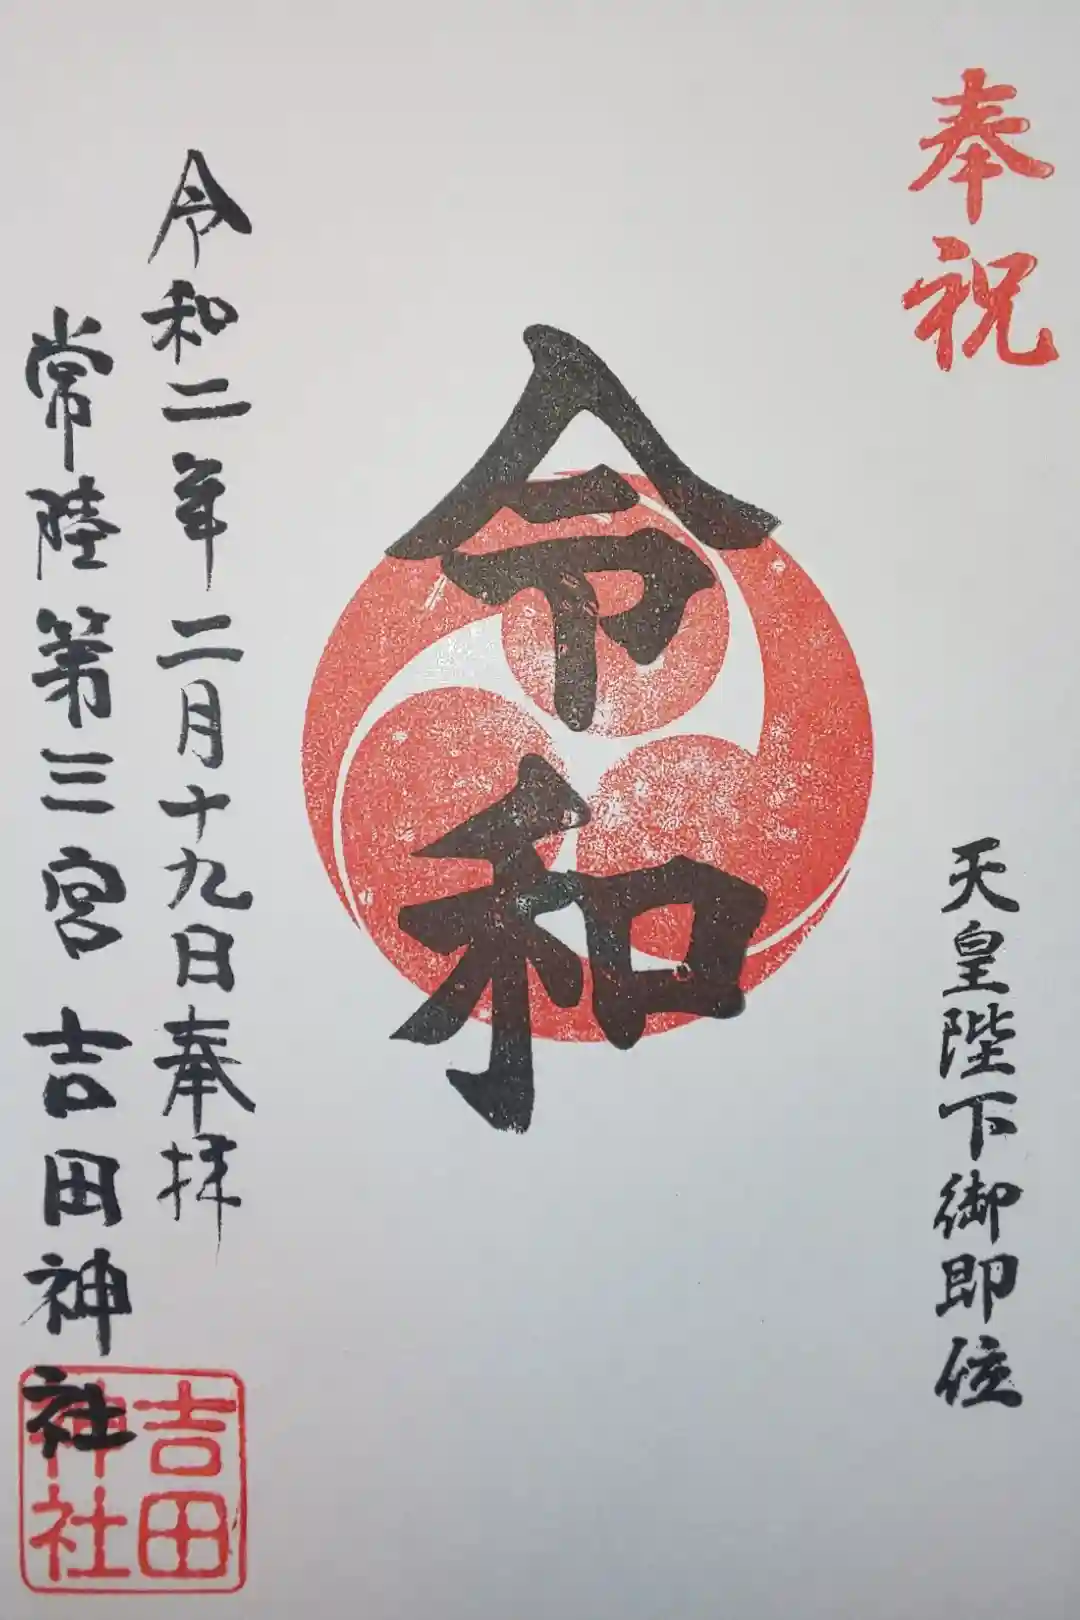 奉祝
天皇陛下御即位
令和
令和二年二月十九日奉拝
常陸第三宮 吉田神社
吉田
神社